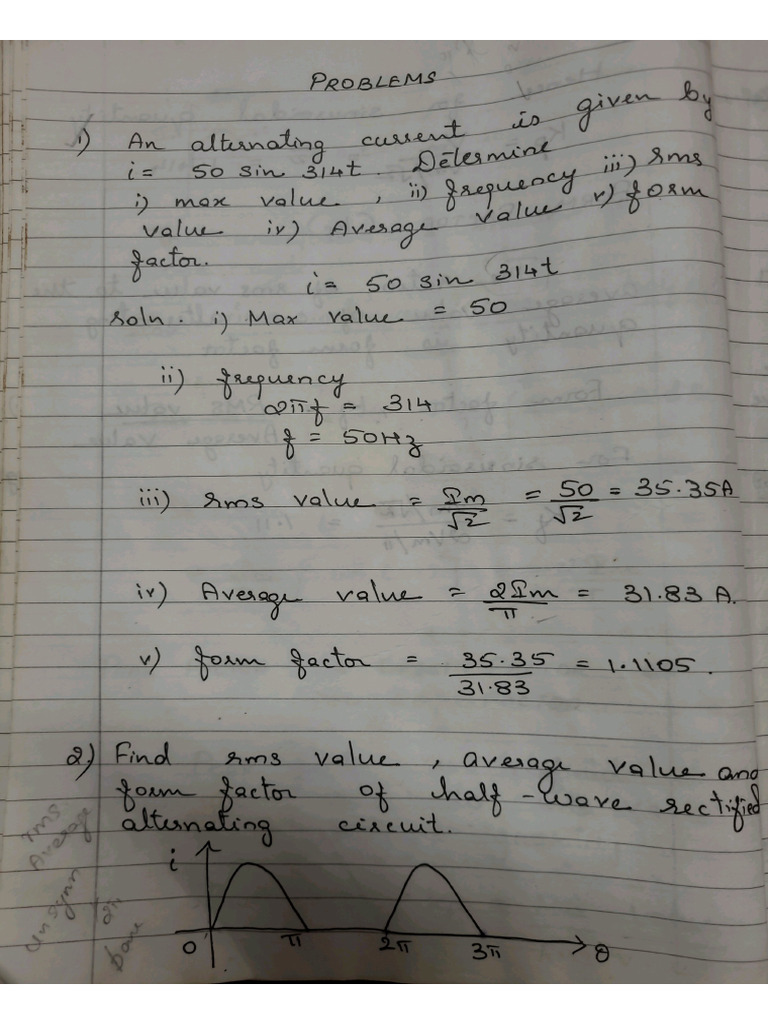 PROBLEMS
1) An alternating current is given by
i = 50 sin 314t. Determine
i) max value, ii) frequency iii) rms
value iv) Average value v) form
factor.
i = 50 sin 314t
soln. i) Max value = 50
ii) frequency
2πf = 314
f = 50Hz
iii) rms value = Im/√2 = 50/√2 = 35.35A
iv) Average value = 2Im/π = 31.83 A.
v) form factor = 35.35/31.83 = 1.1105.
2) Find rms value, average value and
form factor of half-wave rectified
alternating circuit.
rms
Average
unsymm
2π
base
i
0 π 2π 3π θ